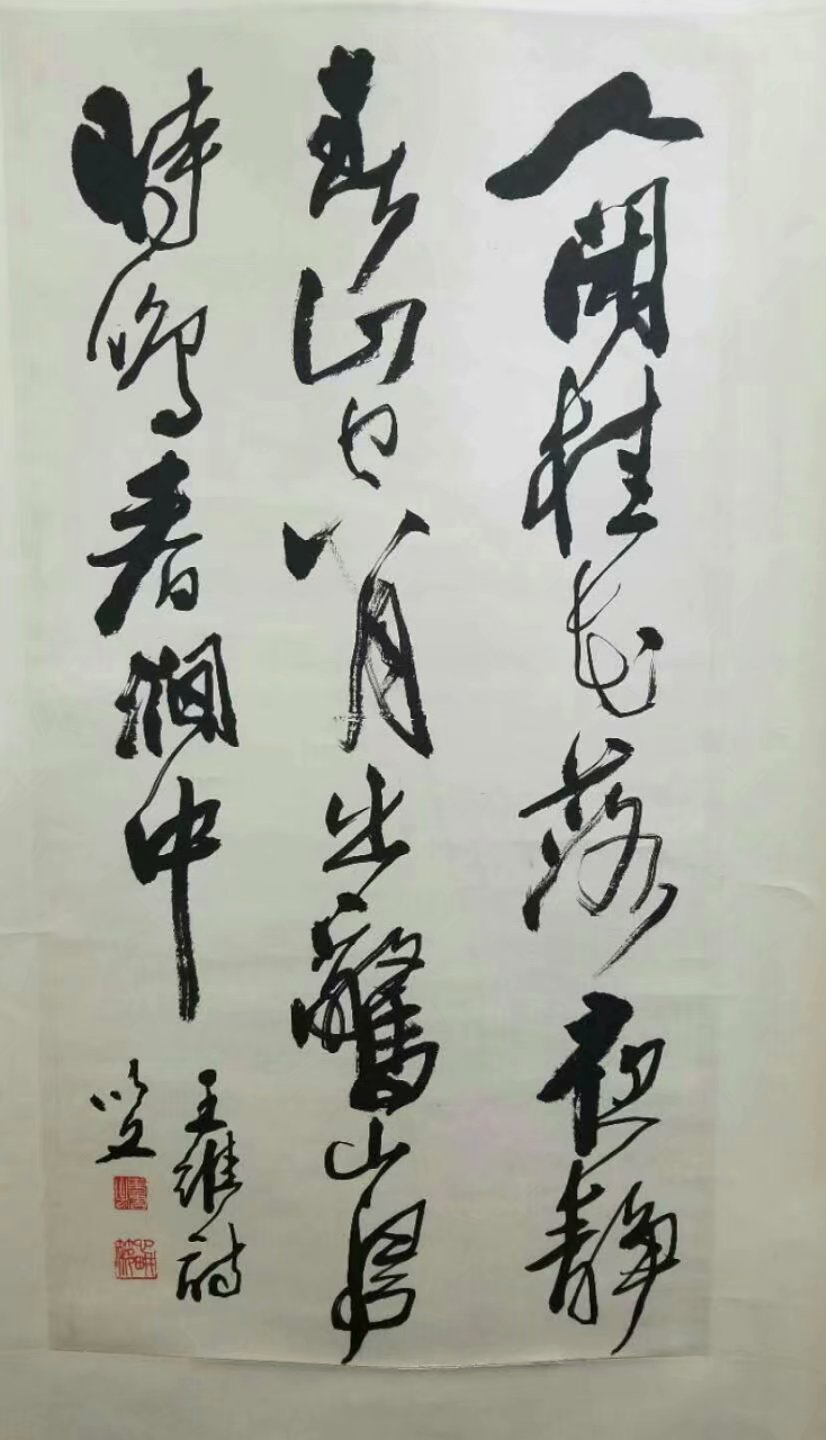 人閒桂花落夜静
春山空月出驚山鳥
時鳴春澗中
王維詩